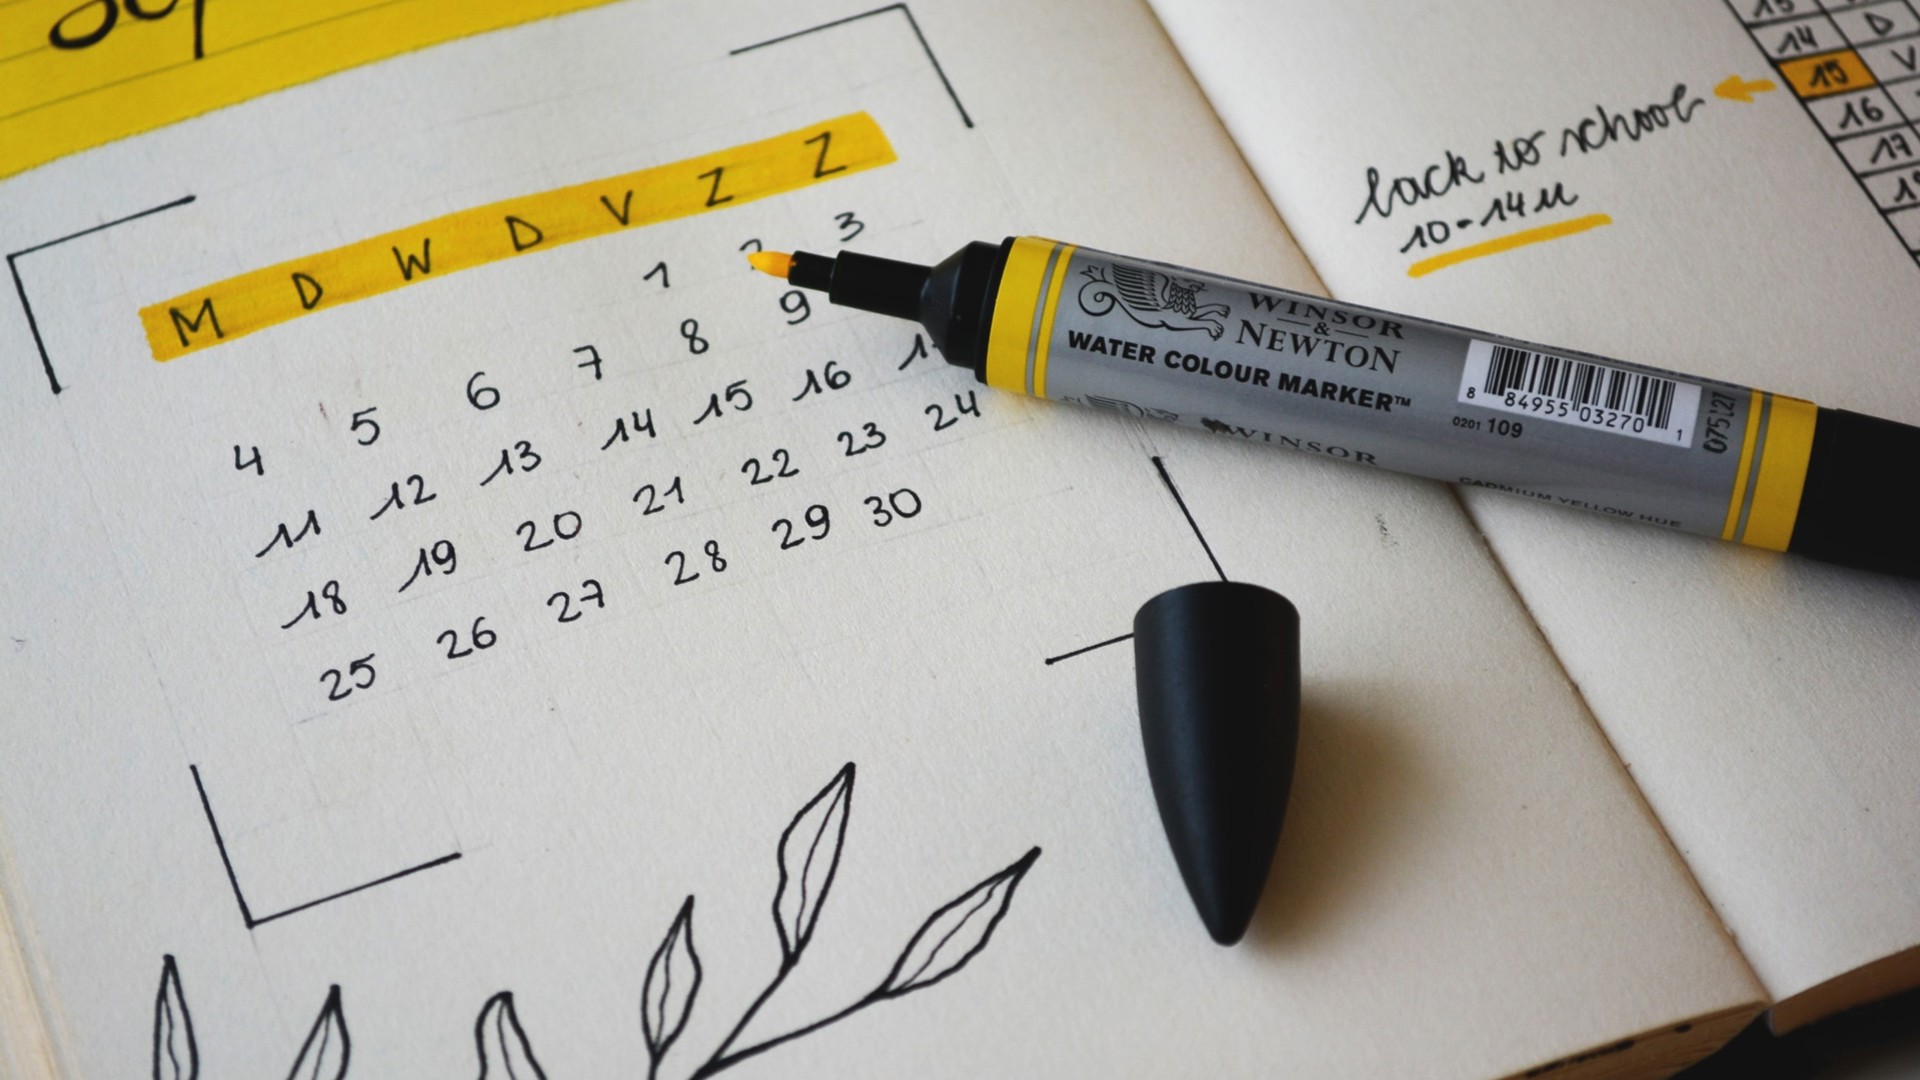 M D W D V Z Z
1 2 3
4 5 6 7 8 9
11 12 13 14 15 16
18 19 20 21 22 23 24
25 26 27 28 29 30
14 D
15 V
16
17
back to school
10-14u
WINSOR
&
NEWTON
WATER COLOUR MARKER™
8 84955 03270 1
0201 109
075'27
WINSOR
CADMIUM YELLOW HUE